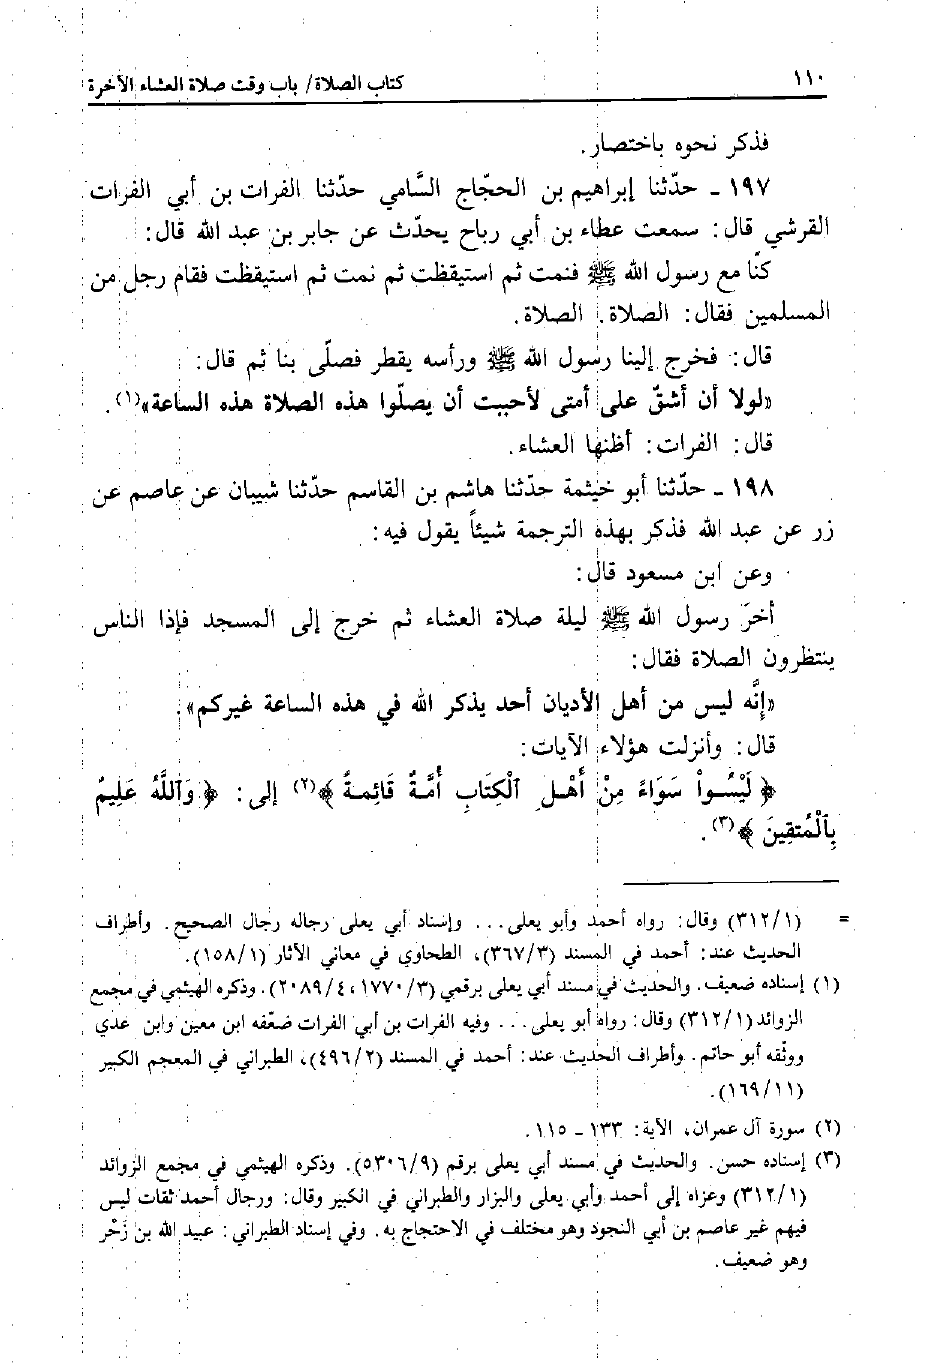 ١١٠
كتاب الصلاة/ باب وقت صلاة العشاء الآخرة
فذكر نحوه باختصار.
١٩٧ ـ حدّثنا إبراهيم بن الحجّاج السَّامي حدّثنا الفرات بن أبي الفرات
القرشي قال: سمعت عطاء بن أبي رباح يحدّث عن جابر بن عبد الله قال:
كنّا مع رسول الله ﷺ فنمت ثم استيقظت ثم نمت ثم استيقظت فقام رجل من
المسلمين فقال: الصلاة. الصلاة.
قال: فخرج إلينا رسول الله ﷺ ورأسه يقطر فصلّى بنا ثم قال:
«لولا أن أشقّ على أمتى لأحببت أن يصلّوا هذه الصلاة هذه الساعة»(١).
قال: الفرات: أظنها العشاء.
١٩٨ ـ حدّثنا أبو خيثمة حدّثنا هاشم بن القاسم حدّثنا شيبان عن عاصم عن
زر عن عبد الله فذكر بهذه الترجمة شيئاً يقول فيه:
وعن ابن مسعود قال:
أخرّ رسول الله ﷺ ليلة صلاة العشاء ثم خرج إلى المسجد فإذا الناس
ينتظرون الصلاة فقال:
«إنَّه ليس من أهل الأديان أحد يذكر الله في هذه الساعة غيركم».
قال: وأنزلت هؤلاء الآيات:
﴿ لَيْسُواْ سَوَاءً مِنْ أَهْلِ ٱلْكِتَابِ أُمَّةٌ قَائِمةٌ ﴾(٢) إلى: ﴿ وَٱللَّهُ عَلِيمٌ
بِٱلْمُتقِينَ ﴾(٣).
= (٣١٢/١) وقال: رواه أحمد وأبو يعلى... وإسناد أبي يعلى رجاله رجال الصحيح. وأطراف
الحديث عند: أحمد في المسند (٣٦٧/٣)، الطحاوي في معاني الآثار (١٥٨/١).
(١) إسناده ضعيف. والحديث في مسند أبي يعلى برقمي (١٧٧٠/٣، ٢٠٨٩/٤). وذكره الهيثمي في مجمع
الزوائد (٣١٢/١) وقال: رواه أبو يعلى... وفيه الفرات بن أبي الفرات ضعّفه ابن معين وابن عدي
ووثّقه أبو حاتم. وأطراف الحديث عند: أحمد في المسند (٤٩٦/٢)، الطبراني في المعجم الكبير
(١٦٩/١١).
(٢) سورة آل عمران، الآية: ١٣٣ - ١١٥.
(٣) إسناده حسن. والحديث في مسند أبي يعلى برقم (٥٣٠٦/٩). وذكره الهيثمي في مجمع الزوائد
(٣١٢/١) وعزاه إلى أحمد وأبي يعلى والبزار والطبراني في الكبير وقال: ورجال أحمد ثقات ليس
فيهم غير عاصم بن أبي النجود وهو مختلف في الاحتجاج به. وفي إسناد الطبراني: عبيد الله بن زَحْر
وهو ضعيف.